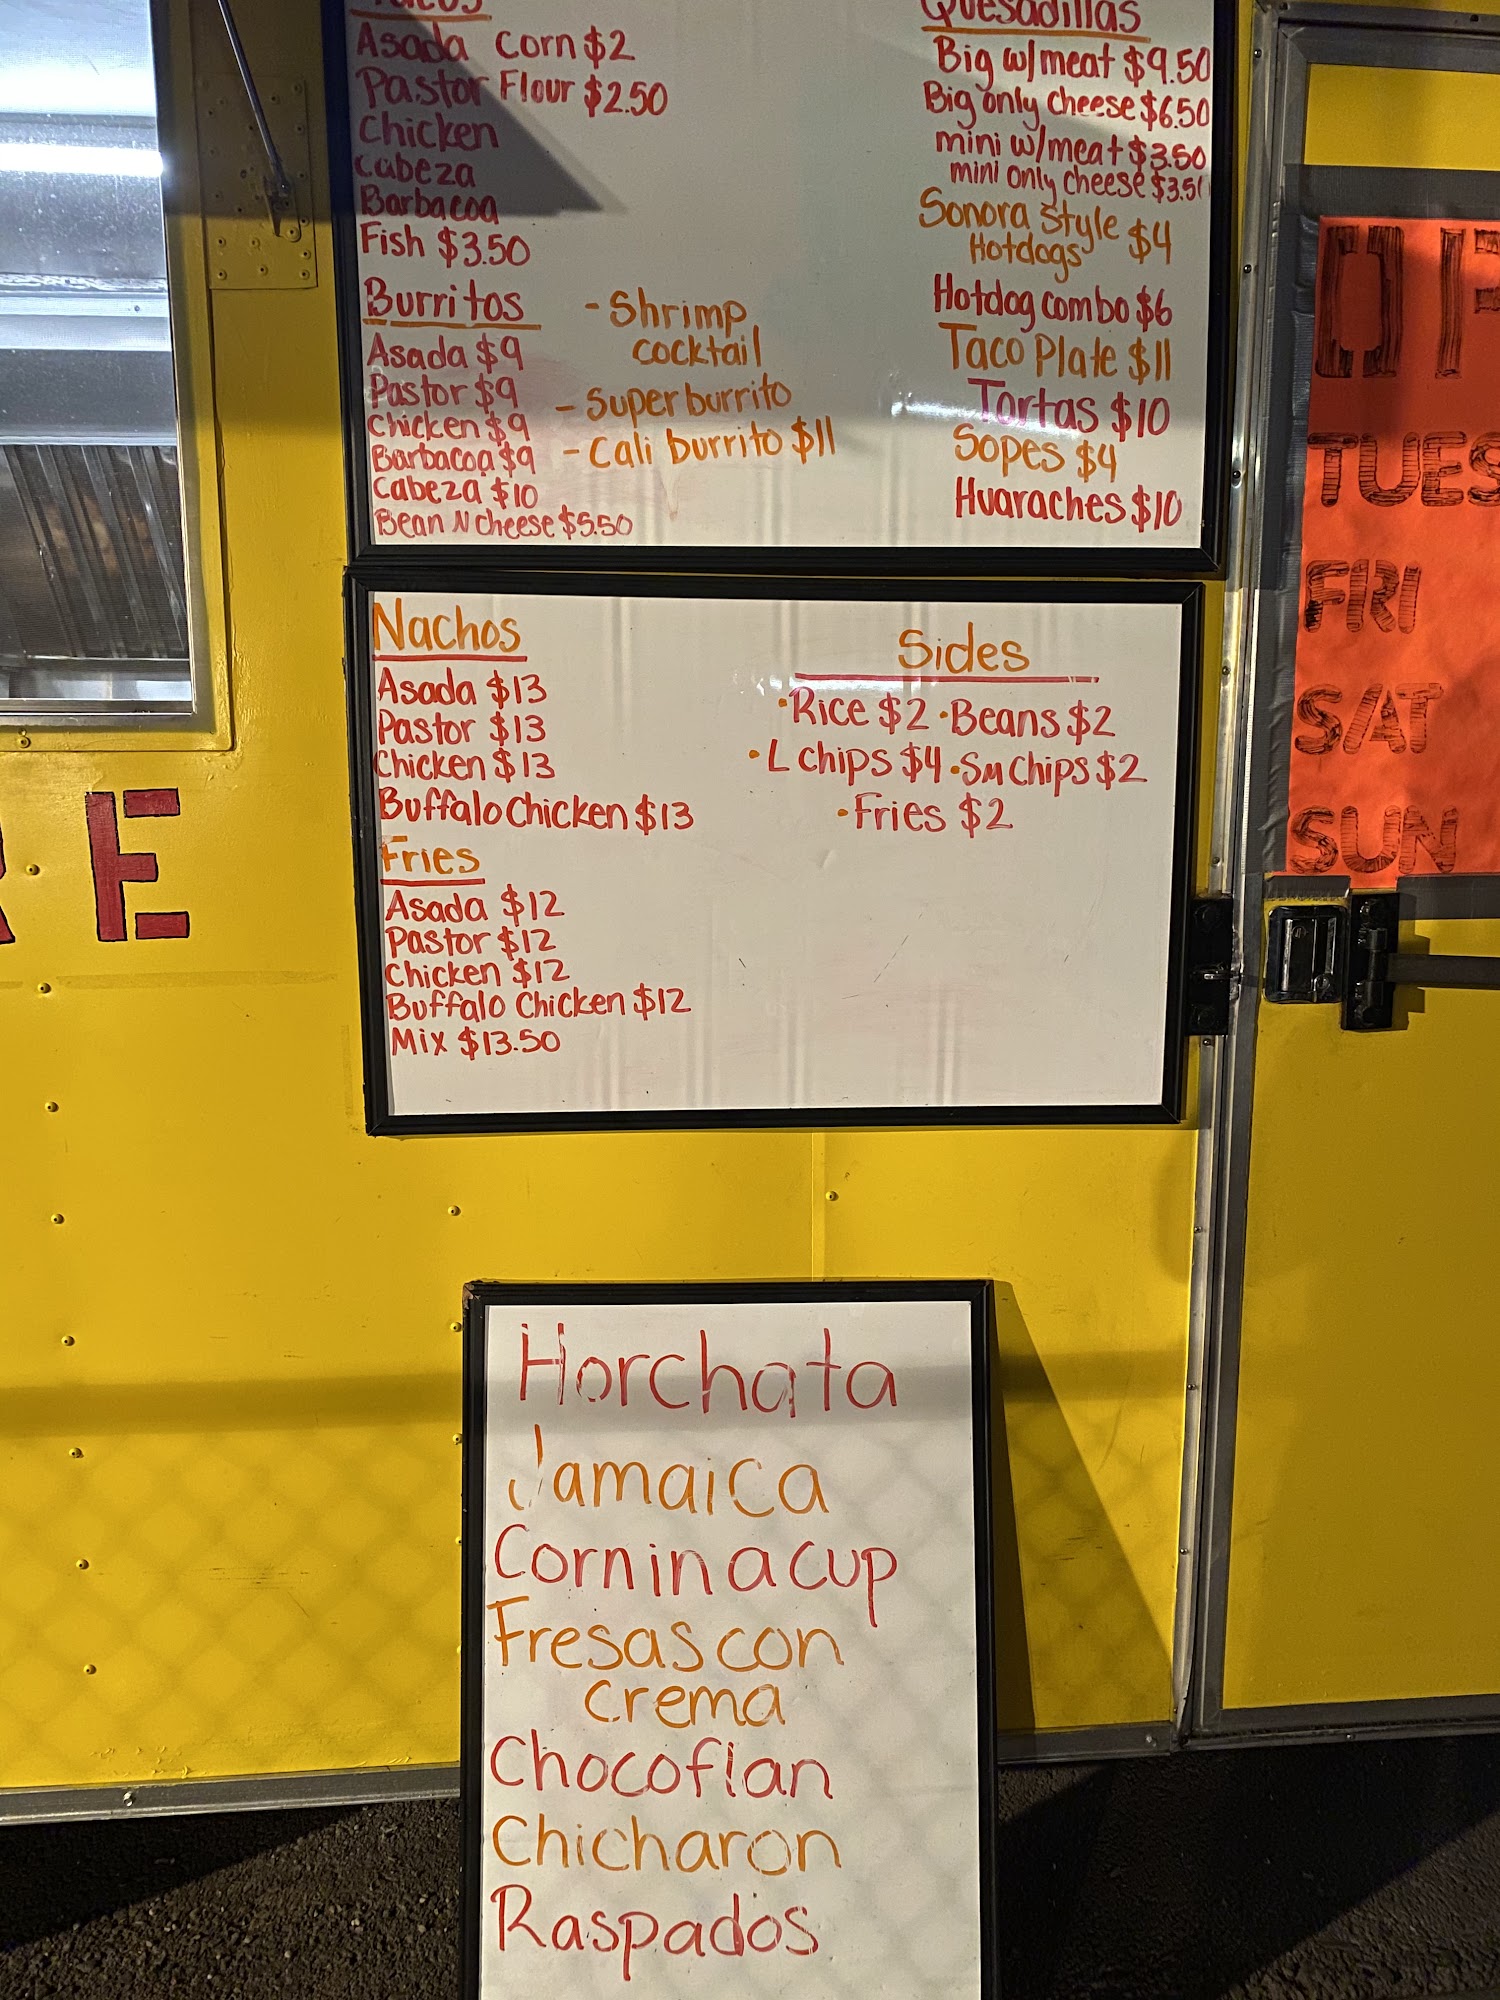 Tacos
Asada Corn $2
Pastor Flour $2.50
Chicken
Cabeza
Barbacoa
Fish $3.50
Burritos
Asada $9
Pastor $9
Chicken $9
Barbacoa $9
Cabeza $10
Bean N cheese $5.50
- Shrimp
cocktail
- Superburrito
- Cali burrito $11
Quesadillas
Big w/meat $9.50
Big only cheese $6.50
mini w/meat $3.50
mini only cheese $3.50
Sonora Style $4
Hotdogs
Hotdog combo $6
Taco Plate $11
Tortas $10
Sopes $4
Huaraches $10
Nachos
Asada $13
Pastor $13
Chicken $13
Buffalo Chicken $13
Fries
Asada $12
Pastor $12
Chicken $12
Buffalo Chicken $12
Mix $13.50
Sides
·Rice $2 ·Beans $2
·L Chips $4 ·Sm Chips $2
·Fries $2
Horchata
Jamaica
Corn in a cup
Fresas con
crema
Chocoflan
Chicharon
Raspados
TUES
FRI
SAT
SUN